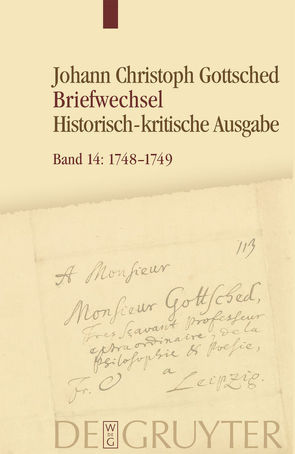 Johann Christoph Gottsched
Briefwechsel
Historisch-kritische Ausgabe
Band 14: 1748–1749
113
A Monsieur
Monsieur Gottsched,
Tres sçavant Professeur
extraordinaire, de la
Philosophie & Poesie,
Fr. O a
Leipzig.
W DE G
DE GRUYTER